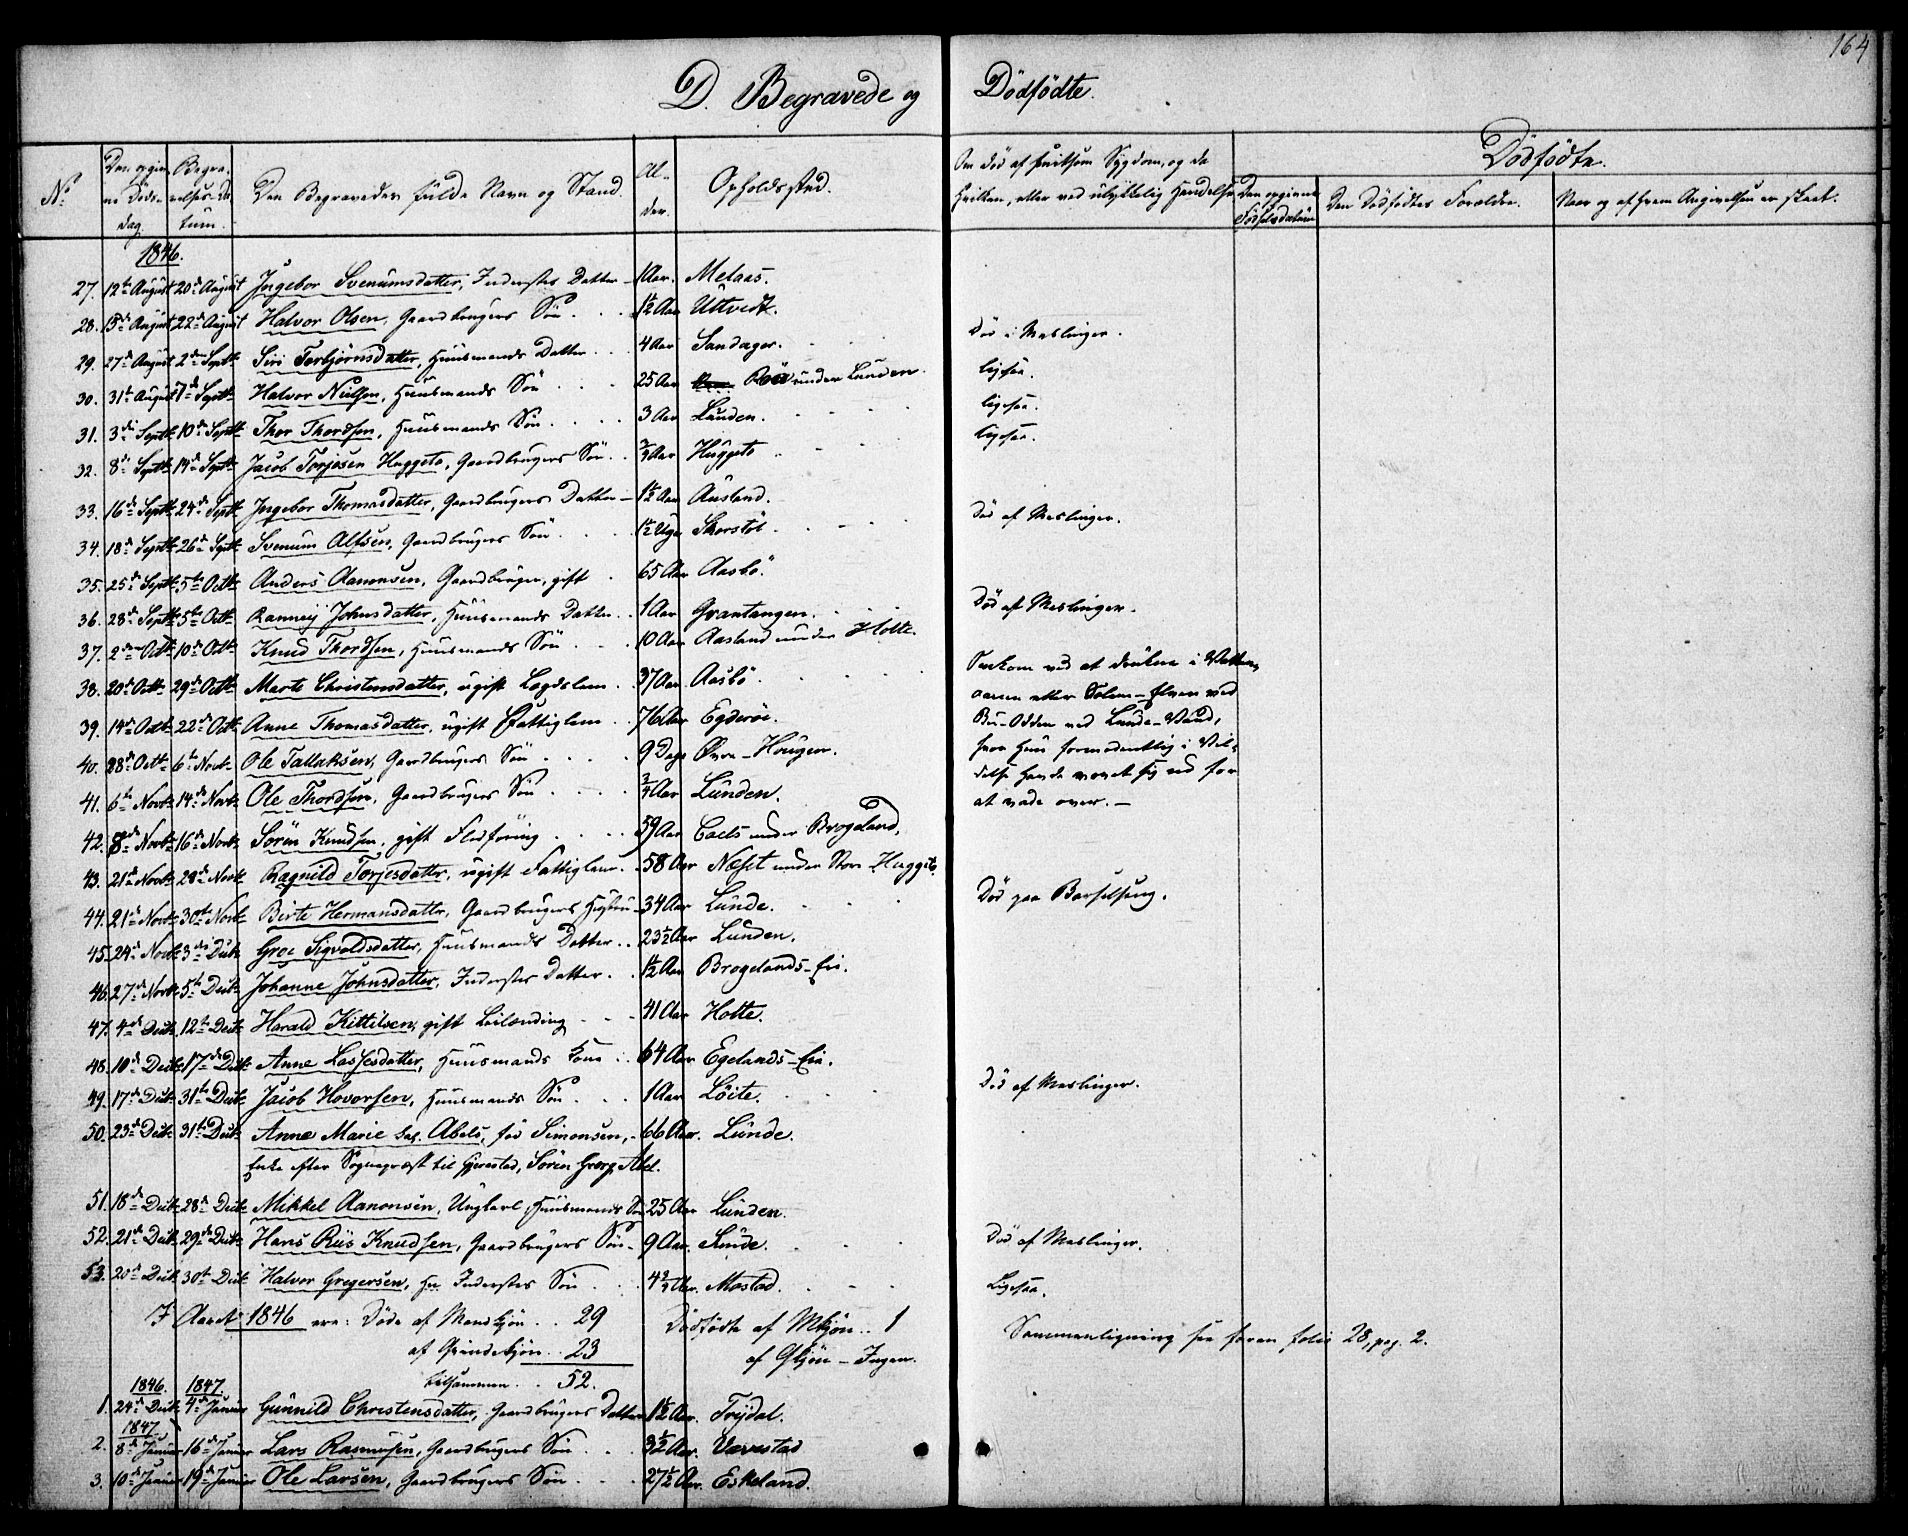 164
D. Begravede og Dödfödte.
No. Den opgivne Døds-dag. Begravelses-Datum. Den Begravedes fulde Navn og Stand. Alder. Opholdssted. Om död af hvilken, eller ved ulykkelig Hendelse Dödfödte. Den opgivne Födselsdatum Den Dödfödtes Forældre. Naar og af hvem Angivelsen er skeet.
1846.
27. 12te August 20de August Ingebor Svenumsdatter, Inderstes Datter 1 Aar. Melaas.
28. 15de August 22de August Halvor Olsen, Gaardbrugers Sön 1½ Aar Ultvedt. Död i Meslinger.
29. 27de August 2den Septbr Siri Torbjörnsdatter, Huusmands Datter 4 Aar Sandager. ligesaa.
30. 31te August 7de Septbr Halvor Nielsen, Huusmands Sön 25 Aar under Lunden. ligesaa.
31. 3die Septbr 10de Septbr Thor Thordsen, Huusmands Sön 3 Aar Lunden. ligesaa.
32. 8de Septbr 14de Septbr Jacob Torjesen Huggeto, Gaardbrugers Sön ¾ Aar Huggeto
33. 16de Septbr 24de Septbr Ingebor Thomasdatter, Gaardbrugers Datter 1½ Aar Ausland. Död af Meslinger.
34. 18de Septbr 26de Septbr Svenum Alfsen, Gaardbrugers Sön 1½ Uge Skorstöl
35. 25de Septbr 5te Octbr Anders Aanonsen, Gaardbruger, gift 65 Aar Aasbö.
36. 28de Septbr 5te Octbr Ranneij Johnsdatter, Huusmands Datter 1 Aar Grantangen. Död af Meslinger.
37. 2den Octbr 10de Octbr Knud Thordsen, Huusmands Sön 10 Aar Aasland under Holte.
38. 20de Octbr 29de Octbr Marte Christensdatter, ugift Lægdslem 37 Aar Aasbö. Omkom ved at drukne i Vatten,
39. 14de Octbr 22de Octbr Anne Thomasdatter, ugift Fattiglem 76 Aar Egderöe. Elven ved
ved Lunde-Vand,
40. 28de Octbr 6te Novbr Ole Tallaksen, Gaardbrugers Sön 9 Dage Övre-Hougen. hvor hun formodentlig i Vil-
41. 6te Novbr 14de Novbr Ole Thordsen, Gaardbrugers Sön ¾ Aar Lunden. delse havde vovet sig ud for
at vade over.
42. 8de Novbr 16de Novbr Sören Knudsen, gift Flodföring 59 Aar under Brogeland.
43. 21de Novbr 28de Novbr Ragnild Torjesdatter, ugift Fattiglem 58 Aar Næset under Store Huggeto.
44. 21de Novbr 30te Novbr Birte Hermansdattr, Gaardbrugers Hustru 34 Aar Lunde. Död paa Barselseng.
45. 24de Novbr 3die Decbr Groe Sigvaldsdatter, Huusmands Datter 23½ Aar Lunden.
46. 27de Novbr 5te Decbr Johanne Johnsdatter, Inderstes Datter 1½ Aar Brogelands-Eie.
47. 4de Decbr 12te Decbr Harald Kittilsen, gift Leilænding 41 Aar Holte.
48. 10de Decbr 17de Decbr Anne Lassesdatter, Huusmands Kone 64 Aar Egelands-Eie.
49. 17de Decbr 31te Decbr Jacob Hovorsen, Huusmands Sön 1 Aar Löite. Död af Meslinger.
50. 23de Decbr 31te Decbr Anne Marie sal. Abels, föd Simonsen, 66 Aar. Lunde.
Enke efter Sognepræst til Gjerestad, Sören Georg Abel.
51. 18de Decbr 28de Decbr Mikkel Aanonsen, Ungkarl, Huusmands Sön 25 Aar Lunden.
52. 21de Decbr 29de Decbr Hans Riis Knudsen, Gaardbrugers Sön 9 Aar. Lunde. Död af Meslinger.
53. 20de Decbr 30te Decbr Halvor Gregersen, en Inderstes Sön 4¾ Aar. Mostad. Ligesaa.
I Aaret 1846 ere: Döde af Mandkjön 29 Dödfödte af Mkjön 1 Sammenligning see foran folio 28, pag. 2.
af Qvindekjön 23 af Qkjön - Ingen.
tilsammen 52.
1846. 1847.
1. 24de Decbr 4de Januar Gunnild Christensdatter, Gaardbrugers Datter 1½ Aar. Trydal.
1847
2. 8de Januar 16de Januar Lars Rasmusen, Gaardbrugers Sön 3½ Aar. Vævestad
3. 10de Januar 19de Januar Ole Larsen, Gaardbrugers Sön 27½ Aar. Eskeland.